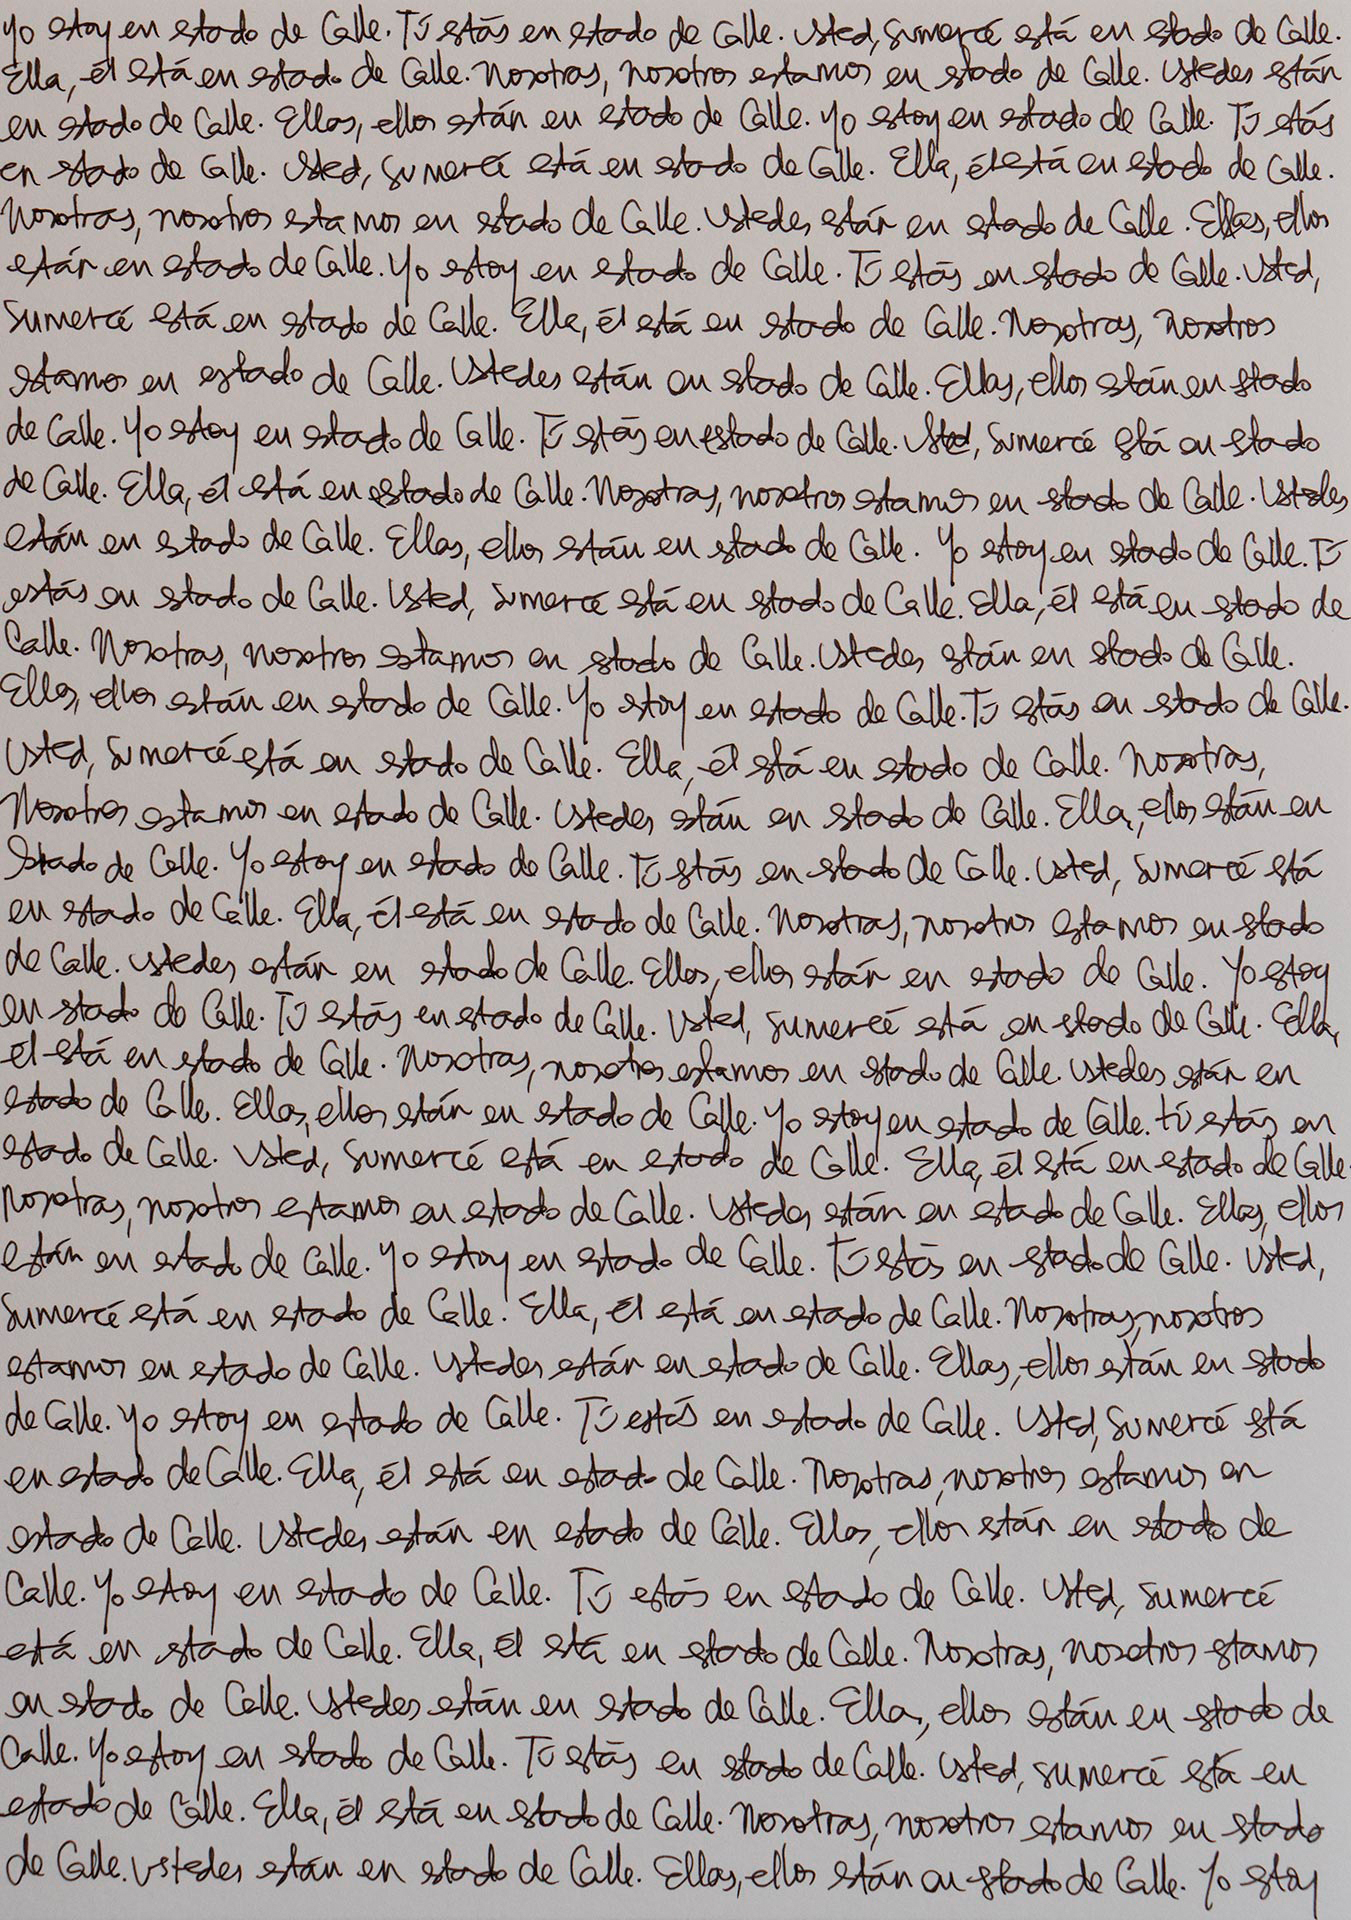 Yo estoy en estado de Calle. Tú estás en estado de Calle. Usted, sumercé está en estado de Calle.
Ella, él está en estado de Calle. Nosotras, nosotros estamos en estado de Calle. Ustedes están
en estado de Calle. Ellas, ellos están en estado de Calle. Yo estoy en estado de Calle. Tú estás
en estado de Calle. Usted, sumercé está en estado de Calle. Ella, él está en estado de Calle.
Nosotras, nosotros estamos en estado de Calle. Ustedes están en estado de Calle. Ellas, ellos
están en estado de Calle. Yo estoy en estado de Calle. Tú estás en estado de Calle. Usted,
sumercé está en estado de Calle. Ella, él está en estado de Calle. Nosotras, nosotros
estamos en estado de Calle. Ustedes están en estado de Calle. Ellas, ellos están en estado
de Calle. Yo estoy en estado de Calle. Tú estás en estado de Calle. Usted, sumercé está en estado
de Calle. Ella, él está en estado de Calle. Nosotras, nosotros estamos en estado de Calle. Ustedes
están en estado de Calle. Ellas, ellos están en estado de Calle. Yo estoy en estado de Calle. Tú
estás en estado de Calle. Usted, sumercé está en estado de Calle. Ella, él está en estado de
Calle. Nosotras, nosotros estamos en estado de Calle. Ustedes están en estado de Calle.
Ellas, ellos están en estado de Calle. Yo estoy en estado de Calle. Tú estás en estado de Calle.
Usted, sumercé está en estado de Calle. Ella, él está en estado de Calle. Nosotras,
Nosotros estamos en estado de Calle. Ustedes están en estado de Calle. Ellas, ellos están en
estado de Calle. Yo estoy en estado de Calle. Tú estás en estado de Calle. Usted, sumercé está
en estado de Calle. Ella, él está en estado de Calle. Nosotras, nosotros estamos en estado
de Calle. Ustedes están en estado de Calle. Ellas, ellos están en estado de Calle. Yo estoy
en estado de Calle. Tú estás en estado de Calle. Usted, sumercé está en estado de Calle. Ella,
él está en estado de Calle. Nosotras, nosotros estamos en estado de Calle. Ustedes están en
estado de Calle. Ellas, ellos están en estado de Calle. Yo estoy en estado de Calle. tú estás en
estado de Calle. Usted, sumercé está en estado de Calle. Ella, él está en estado de Calle.
Nosotras, nosotros estamos en estado de Calle. Ustedes están en estado de Calle. Ellas, ellos
están en estado de Calle. Yo estoy en estado de Calle. Tú estás en estado de Calle. Usted,
sumercé está en estado de Calle. Ella, él está en estado de Calle. Nosotras, nosotros
estamos en estado de Calle. Ustedes están en estado de Calle. Ellas, ellos están en estado
de Calle. Yo estoy en estado de Calle. Tú estás en estado de Calle. Usted, sumercé está
en estado de Calle. Ella, él está en estado de Calle. Nosotras, nosotros estamos en
estado de Calle. Ustedes están en estado de Calle. Ellas, ellos están en estado de
Calle. Yo estoy en estado de Calle. Tú estás en estado de Calle. Usted, sumercé
está en estado de Calle. Ella, él está en estado de Calle. Nosotras, nosotros estamos
en estado de Calle. Ustedes están en estado de Calle. Ellas, ellos están en estado de
Calle. Yo estoy en estado de Calle. Tú estás en estado de Calle. Usted, sumercé está en
estado de Calle. Ella, él está en estado de Calle. Nosotras, nosotros estamos en estado
de Calle. Ustedes están en estado de Calle. Ellas, ellos están en estado de Calle. Yo estoy